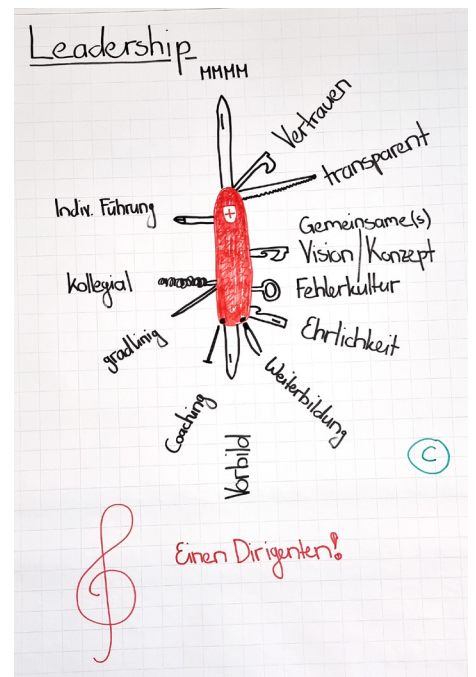 Leadership
MMMM
Vertrauen
transparent
Indiv. Führung
Gemeinsame(s)
Vision/Konzept
Kollegial
Fehlerkultur
gradlinig
Ehrlichkeit
Coaching
Weiterbildung
Vorbild
C
Einen Dirigenten!